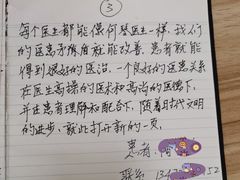 ③
每个医生都能像何琴医生一样,我们
的医患矛盾自然能改善,患者就能
得到很好的医治。一个良好的医患关系
在医生高操的医术和高尚的医德下,
并在患者理解和配合下,随着时代文明
的进步,就此打开新的一页。
患者:
联系 134 52